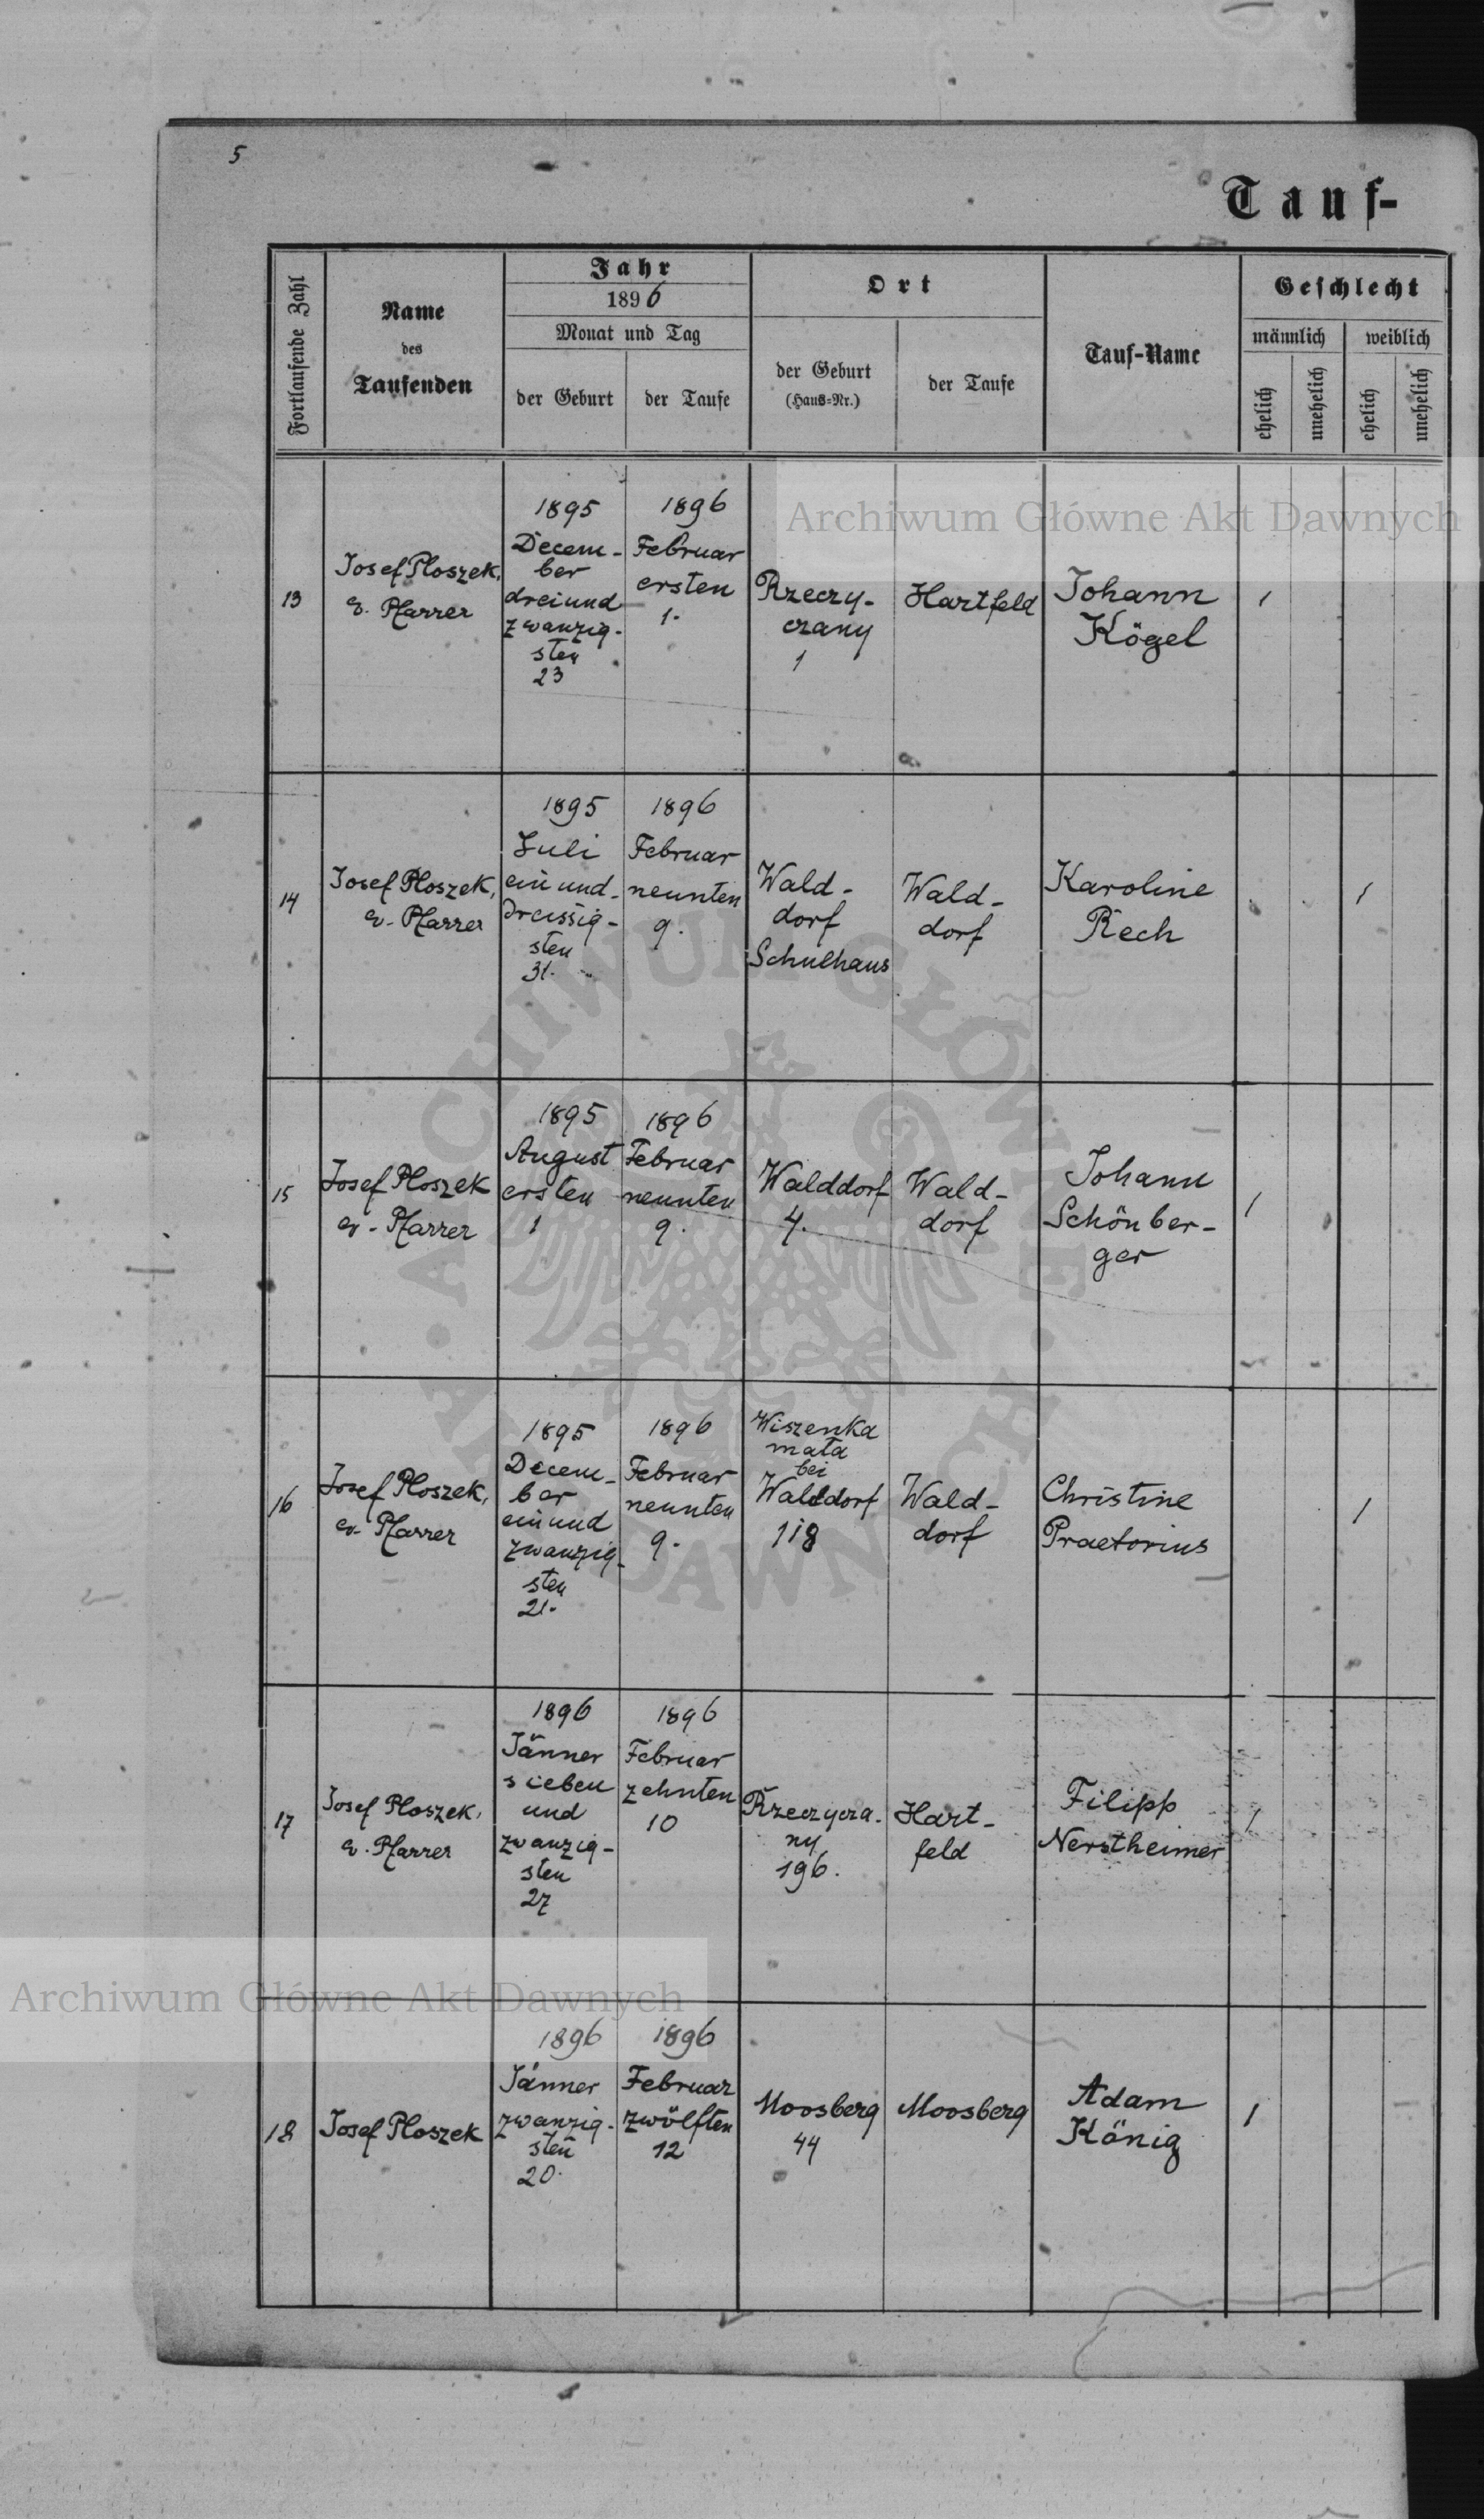 5
Tauf-
Fortlaufende Zahl
Name
des
Taufenden
Jahr
1896
Monat und Tag
der Geburt
der Taufe
Ort
der Geburt
(Haus-Nr.)
der Taufe
Tauf-Name
Geschlecht
männlich
weiblich
ehelich
unehelich
ehelich
unehelich
13
Josef Ploszek,
ev. Pfarrer
1895
Decem-
ber
dreiund
zwanzig-
sten
23
1896
Februar
ersten
1.
Rzeczy-
czany
1
Hartfeld
Johann
Kögel
1
14
Josef Ploszek,
ev. Pfarrer
1895
Juli
ein und-
dreissig-
sten
31.
1896
Februar
neunten
9.
Wald-
dorf
Schulhaus
Wald-
dorf
Karoline
Rech
1
15
Josef Ploszek
ev. Pfarrer
1895
August
ersten
1
1896
Februar
neunten
9.
Walddorf
4.
Wald-
dorf
Johann
Schönber-
ger
1
16
Josef Ploszek,
ev. Pfarrer
1895
Decem-
ber
ein und
zwanzig-
sten
21.
1896
Februar
neunten
9.
Wiszenka
mała
bei
Walddorf
118
Wald-
dorf
Christine
Praetorius
1
17
Josef Ploszek,
ev. Pfarrer
1896
Jänner
sieben
und
zwanzig-
sten
27
1896
Februar
zehnten
10
Rzeczycza-
ny
196.
Hart-
feld
Filipp
Nerstheimer
1
18
Josef Ploszek
1896
Jänner
zwanzig-
sten
20.
1896
Februar
zwölften
12
Moosberg
44
Moosberg
Adam
König
1
Archiwum Główne Akt Dawnych
Archiwum Główne Akt Dawnych
ARCHIWUM GŁÓWNE
AKT DAWNYCH